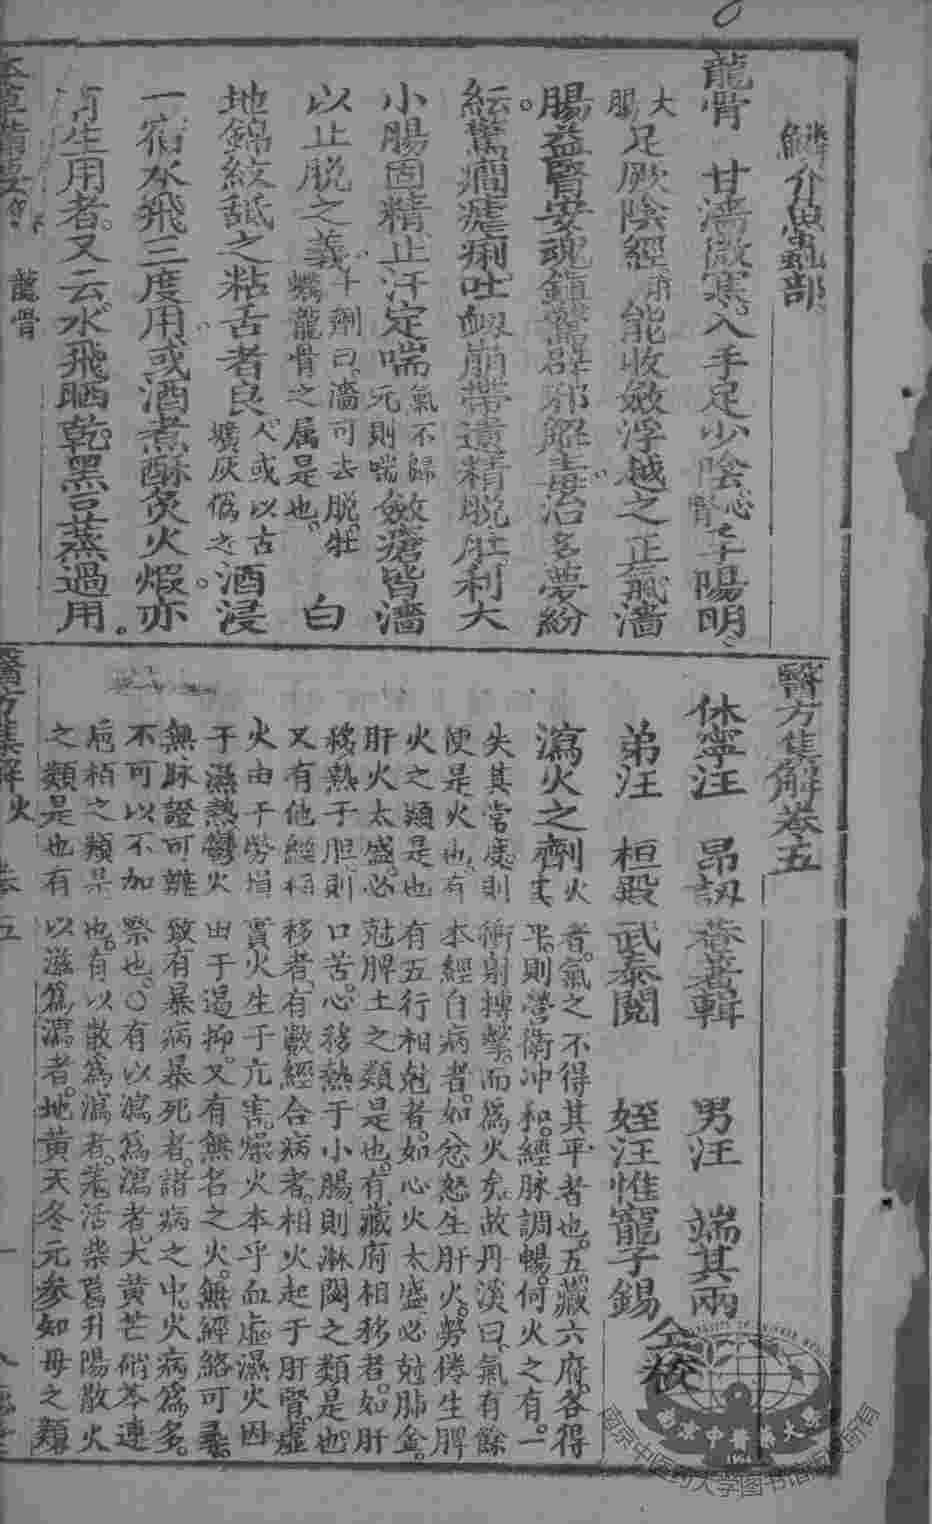 鱗介魚蟲部
龍骨 甘濇微寒入手足少陰心腎手陽明
大腸足厥陰經肝能收斂浮越之正氣濇
腸益腎安魂鎮驚辟邪解毒治多夢紛
紜驚癇瘧痢吐衂崩帶遺精脫肛利大
小腸固精止汗定喘氣不歸元則喘斂瘡皆濇
以止脫之義十劑曰濇可去脫牡蠣龍骨之属是也白
地錦紋舐之粘舌者良人或以古壙灰僞之酒浸
一宿水飛三度用或酒煮酥炙火煆亦
有生用者又云水飛晒乾黑豆蒸過用
龍骨
醫方集解卷五
休寧汪 昂訒菴著輯 男汪 端其兩
弟汪 桓殿武泰閱 姪汪惟寵子錫 仝校
瀉火之劑
火者氣之不得其平者也五藏六府各得
其平則營衛冲和經脉調暢何火之有一
失其常度則衝射搏擊而爲火矣故丹溪曰氣有餘
便是火也有本經自病者如忿怒生肝火勞倦生脾
火之類是也有五行相尅者如心火太盛必尅肺金
肝火太盛必尅脾土之類是也有藏府相移者如肝
移熱于胆則口苦心移熱于小腸則淋閟之類是也
又有他經相移者有數經合病者相火起于肝腎虛
火由于勞損實火生于亢害燥火本乎血虛濕火因
于濕熱鬱火由于遏抑又有無名之火無經絡可尋
無脉證可辨致有暴病暴死者諸病之中火病爲多
不可以不加察也○有以瀉爲瀉者大黃芒硝芩連
梔栢之類是也有以散爲瀉者羌活柴葛升陽散火
之類是也有以滋爲瀉者地黃天冬元参知母之類
醫方集解 火 卷五 一
南京中醫藥大學
1954
南京中医药大学图书馆版权所有